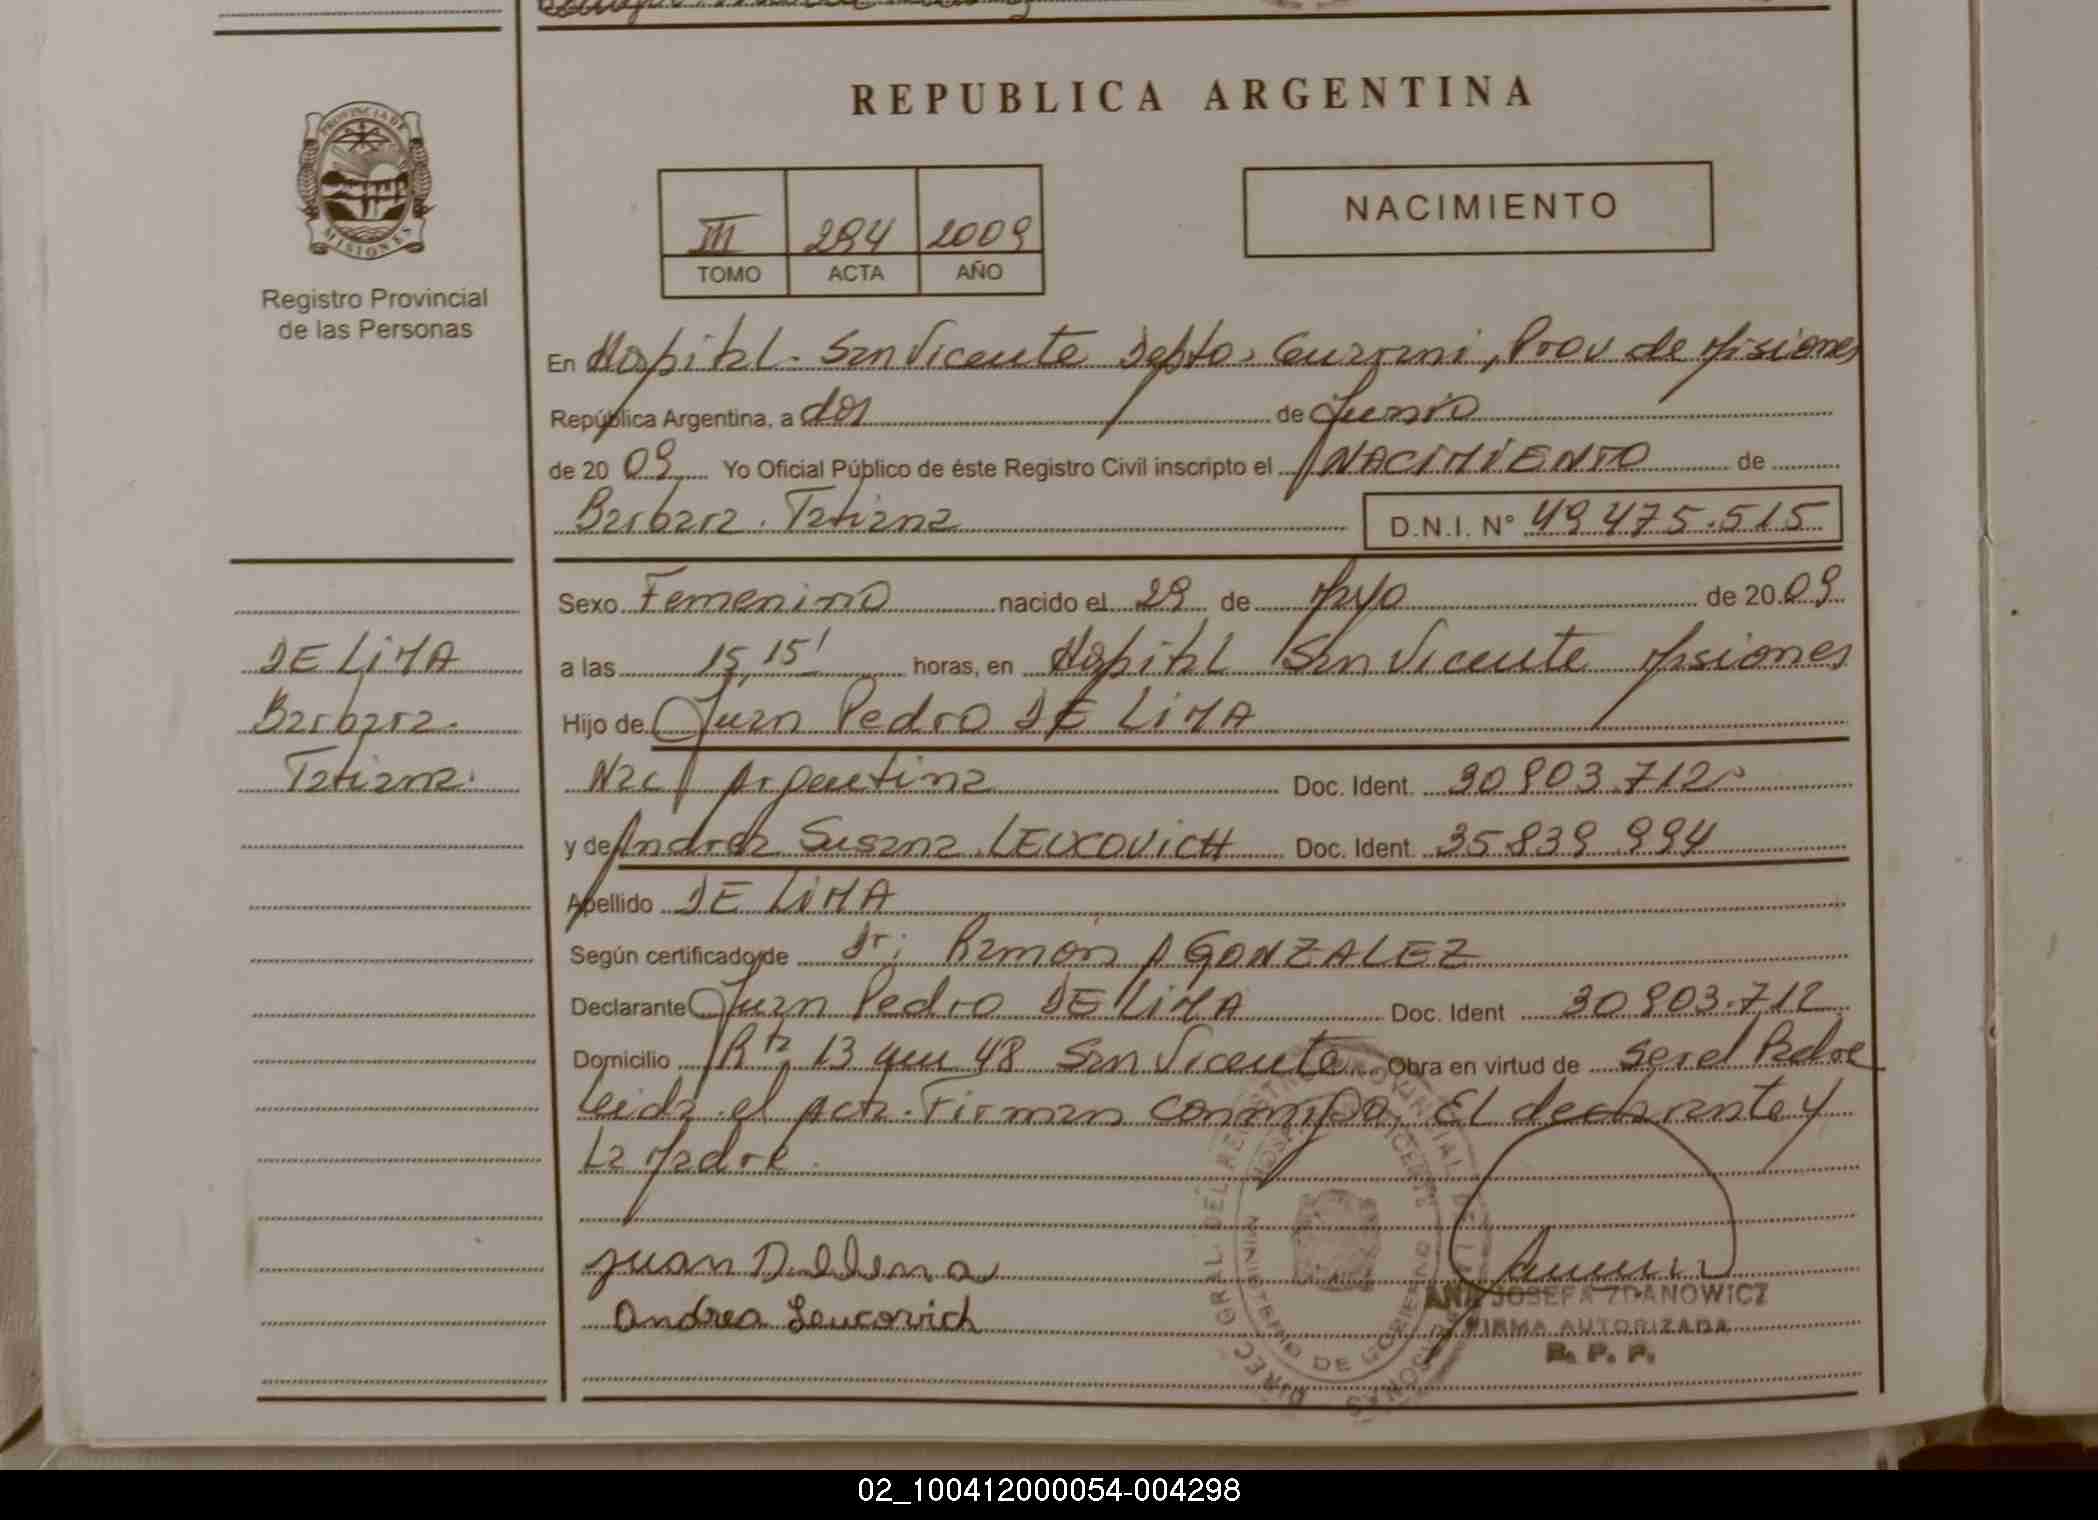 REPUBLICA ARGENTINA
PROVINCIA DE
MISIONES
Registro Provincial
de las Personas
III 294 2009
TOMO ACTA AÑO
NACIMIENTO
En Hospital. San Vicente Depto. Guarani, Prov de Misiones
República Argentina, a dos de Junio
de 2009 Yo Oficial Público de éste Registro Civil inscripto el NACIMIENTO de
Barbara. Tatiana D.N.I. N° 49 475.515
Sexo Femenino nacido el 29 de Mayo de 2009
DE LIMA
Barbara.
Tatiana.
a las 15,15' horas, en Hospital San Vicente Misiones
Hijo de Juan Pedro DE LIMA
Nac Argentina Doc. Ident. 30 903.712
y de Andrea Susana LEUCOVICH Doc. Ident. 35 839 994
Apellido DE LIMA
Según certificado de Dr: Ramón A GONZALEZ
Declarante Juan Pedro DE LIMA Doc. Ident 30 903.712
Domicilio Rta 13 48 San Vicente Obra en virtud de ser el Padre
Leida el Acta. Firman conmigo, El declarante y
La Madre.
Juan
Andrea Leucovich
ANA JOSEFA ZDANOWICZ
FIRMA AUTORIZADA
R. P. P.
DIREC GRAL DEL REGISTRO PROVINCIAL DE LAS PERSONAS
MINISTERIO DE GOBIERNO
02_100412000054-004298